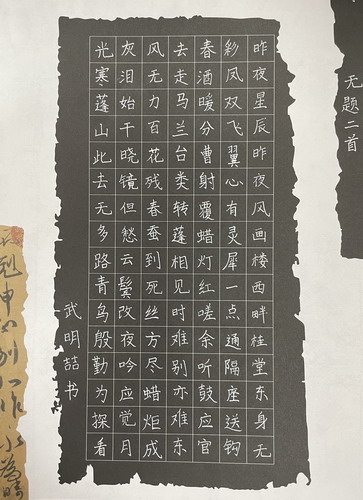 无题二首
昨夜星辰昨夜风画楼西畔桂堂东身无
彩凤双飞翼心有灵犀一点通隔座送钩
春酒暖分曹射覆蜡灯红嗟余听鼓应官
去走马兰台类转蓬相见时难别亦难东
风无力百花残春蚕到死丝方尽蜡炬成
灰泪始干晓镜但愁云鬓改夜吟应觉月
光寒蓬山此去无多路青鸟殷勤为探看
武明喆书